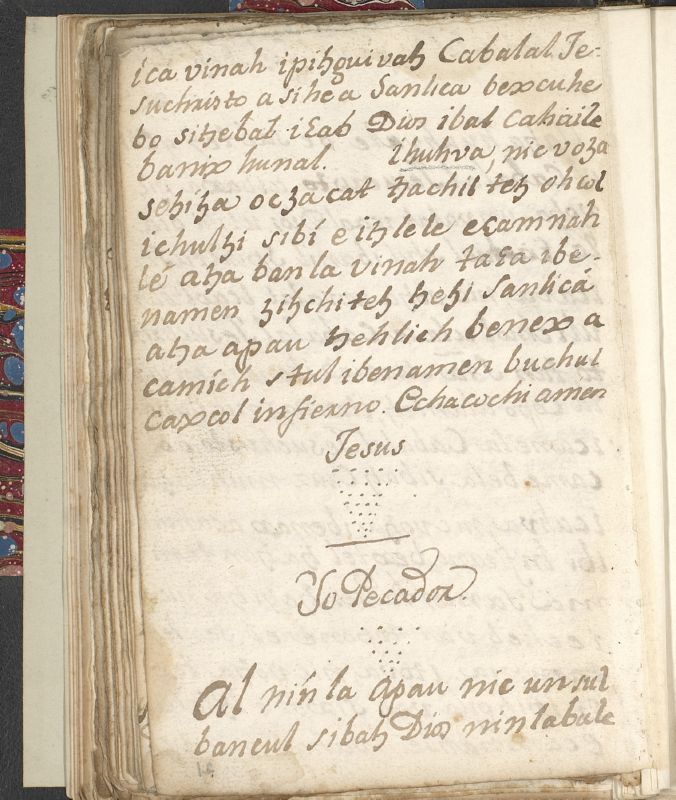 ica vinah ipiꜩguivaꜩ Cabalal Je-
suchristo a sihe a Santica bexcuhe
bo siꜩebal iɛab Dios ibal Cahaile
banix hunal. Ihuhva, nic voꜫa
seꜩiꜩa ocꜫacat ꜩachil teꜩ ohcol
ichulꜩi sibí e iꜩlele eçamnah
lé aꜩa banla vinah taɛa ibe-
namen ꜫiꜩchiteꜩ ꜩeꜩi Santicá
aꜩa apau ꜩehlich benex a
camích stul ibenamen buchul
caxcol infierno. Echacochi amen
Jesus
Yo Pecador.
Al nin la apau nic unsul
bancul sibaꜩ Dios ninlabale